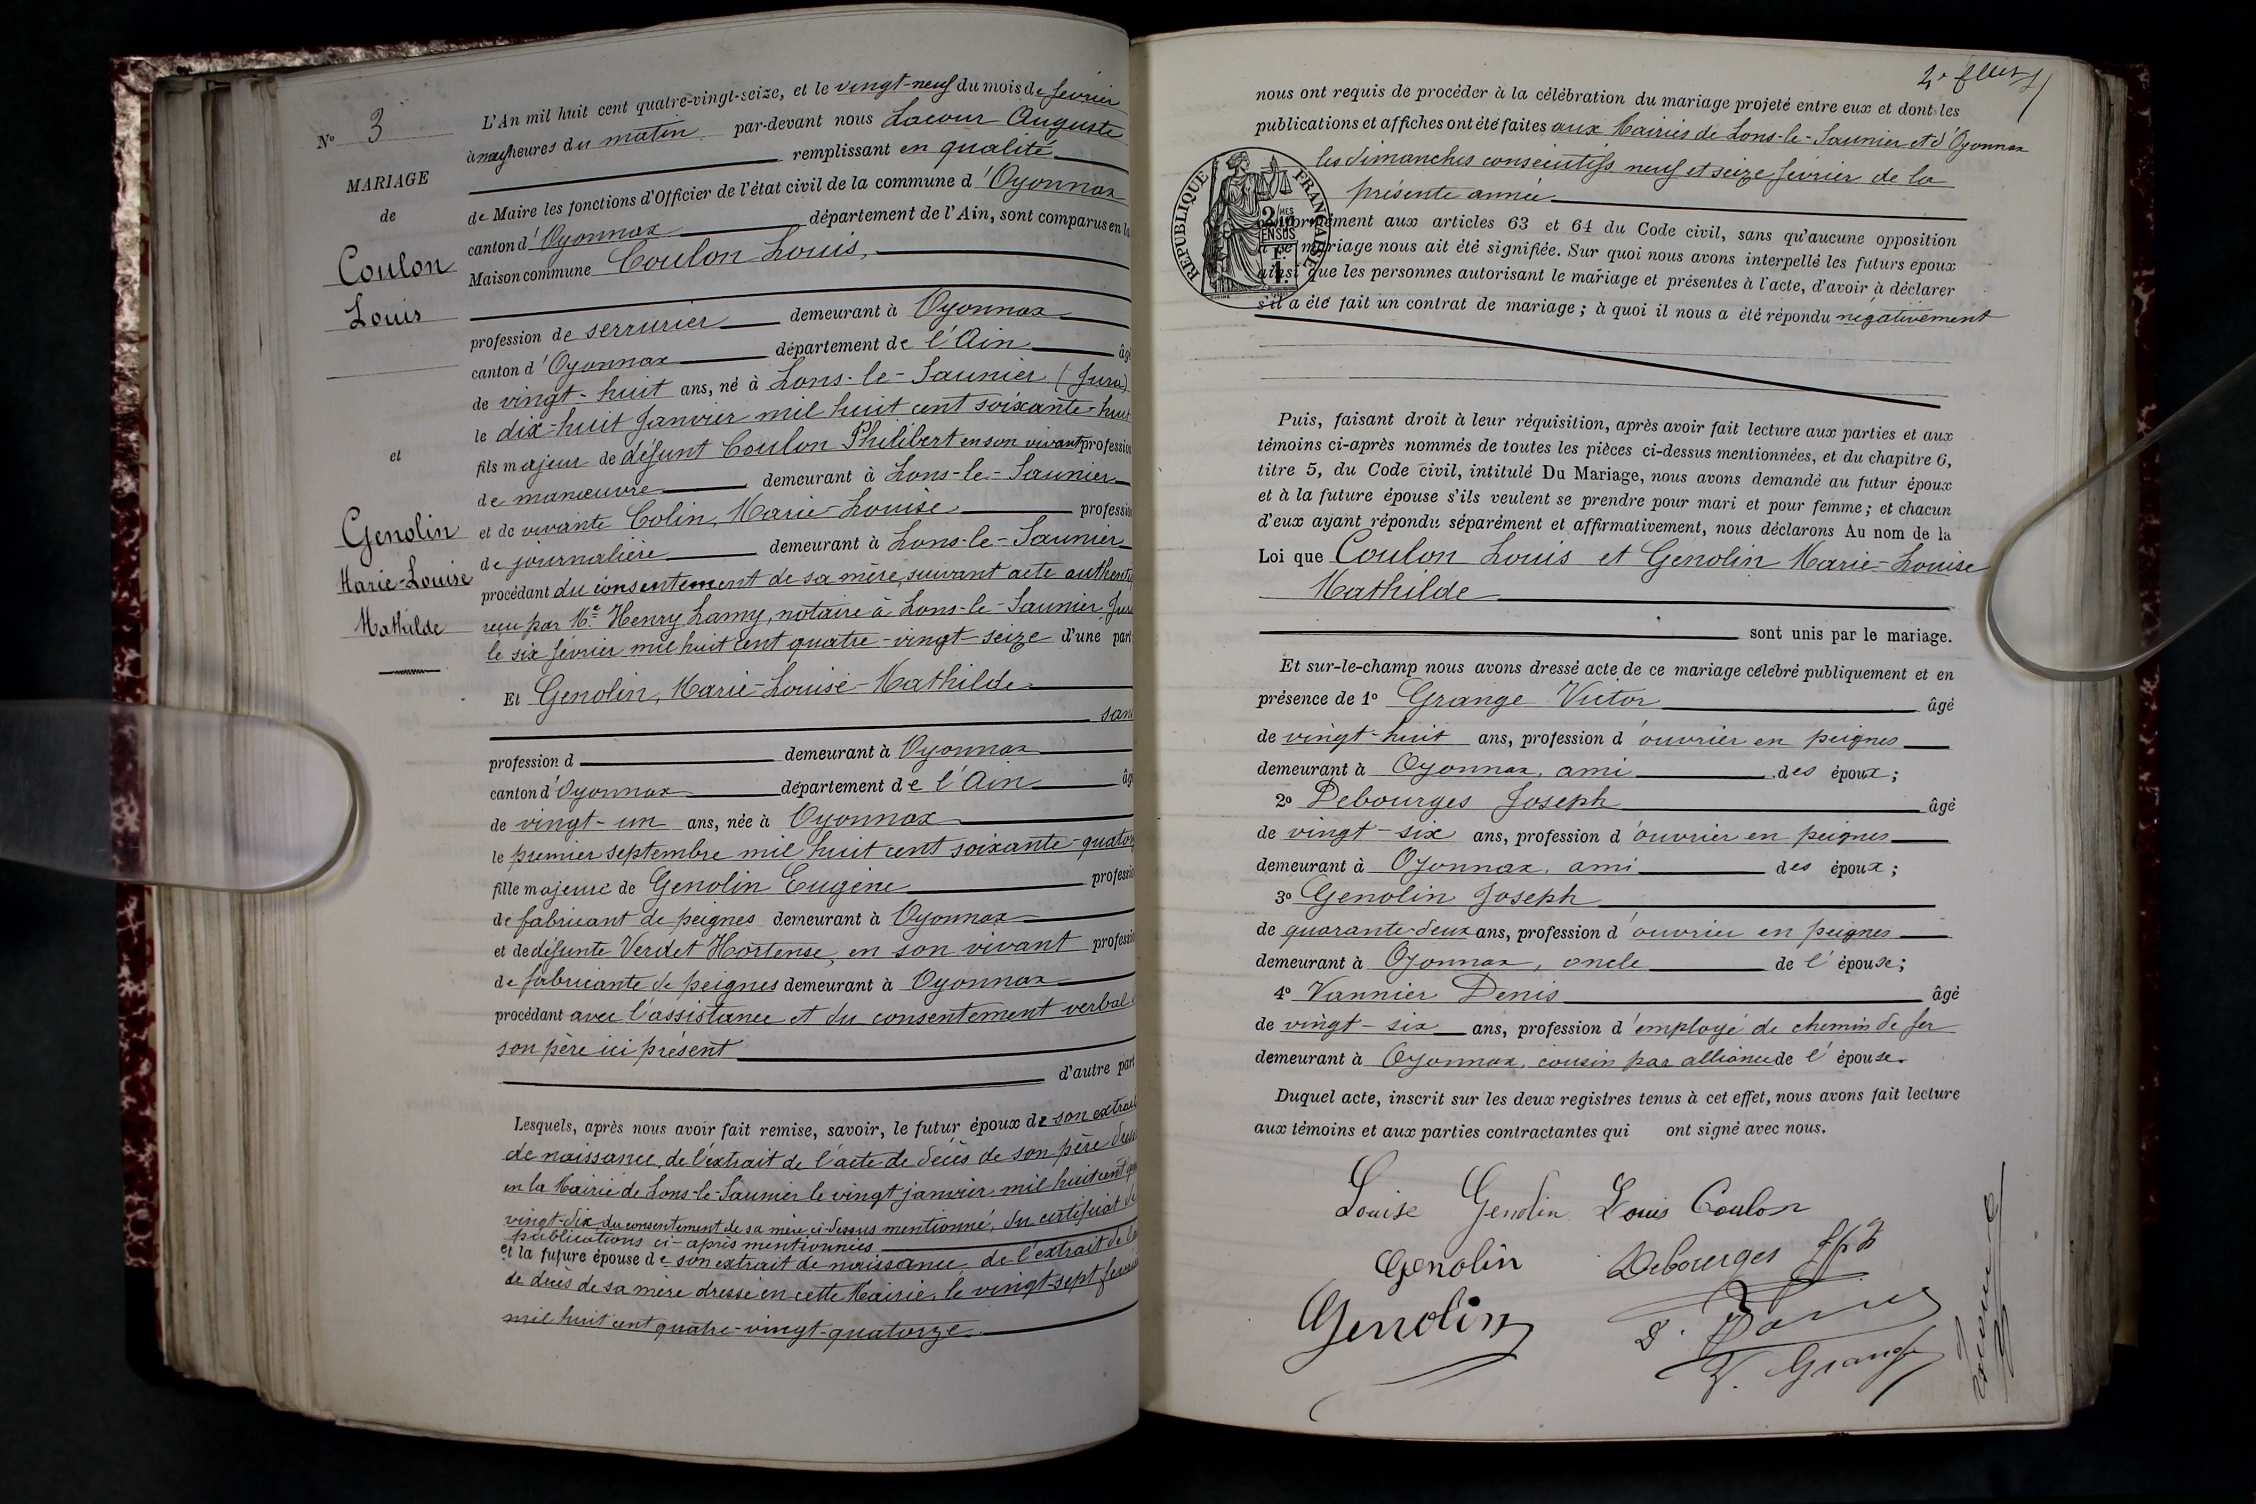 N° 3
MARIAGE
de
Coulon
Louis
et
Genolin
Marie-Louise
Mathilde
L'An mil huit cent quatre-vingt-seize, et le vingt-neuf du mois de février
à neuf heures du matin par-devant nous Lacour Auguste
remplissant en qualité
de Maire les fonctions d'Officier de l'état civil de la commune d'Oyonnax
canton d'Oyonnax département de l'Ain, sont comparus en la
Maison commune Coulon Louis,
profession de serrurier demeurant à Oyonnax
canton d'Oyonnax département de l'Ain âgé
de vingt-huit ans, né à Lons-le-Saunier (Jura)
le dix-huit Janvier mil huit cent soixante-huit
fils majeur de défunt Coulon Philibert en son vivant profession
de manœuvre demeurant à Lons-le-Saunier
et de vivante Colin, Marie-Louise profession
de journalière demeurant à Lons-le-Saunier
procédant du consentement de sa mère, suivant acte authenti
reçu par Me Henry Lamy, notaire à Lons-le-Saunier Jura
le six février mil huit cent quatre-vingt-seize d'une part
Et Genolin, Marie-Louise-Mathilde
sans
profession d demeurant à Oyonnax
canton d'Oyonnax département de l'Ain âg
de vingt-un ans, née à Oyonnax
le premier septembre mil huit cent soixante-quator
fille majeure de Genolin Eugène professio
de fabricant de peignes demeurant à Oyonnax
et de défunte Verdet Hortense, en son vivant professio
de fabricante de peignes demeurant à Oyonnax
procédant avec l'assistance et du consentement verbal
son père ici présent
d'autre part
Lesquels, après nous avoir fait remise, savoir, le futur époux de son extrait
de naissance, de l'extrait de l'acte de décès de son père dressé
en la Mairie de Lons-le-Saunier le vingt janvier mil huit cent
vingt-dix, du consentement de sa mère ci-dessus mentionné, du certificat de
publications ci-après mentionnées
et la future épouse de son extrait de naissance, de l'extrait de l'a
de décès de sa mère dressé en cette Mairie, le vingt-sept
mil huit cent quatre-vingt-quatorze
nous ont requis de procéder à la célébration du mariage projeté entre eux et dont les
publications et affiches ont été faites aux Mairies de Lons-le-Saunier et d'Oyonnax
les dimanches consécutifs neuf et seize février de la
présente année
RÉPUBLIQUE FRANÇAISE
2/10MES
EN SUS
conformément aux articles 63 et 64 du Code civil, sans qu'aucune opposition
à ce mariage nous ait été signifiée. Sur quoi nous avons interpellé les futurs époux
ainsi que les personnes autorisant le mariage et présentes à l'acte, d'avoir à déclarer
s'il a été fait un contrat de mariage ; à quoi il nous a été répondu négativement
Puis, faisant droit à leur réquisition, après avoir fait lecture aux parties et aux
témoins ci-après nommés de toutes les pièces ci-dessus mentionnées, et du chapitre 6,
titre 5, du Code civil, intitulé Du Mariage, nous avons demandé au futur époux
et à la future épouse s'ils veulent se prendre pour mari et pour femme ; et chacun
d'eux ayant répondu séparément et affirmativement, nous déclarons Au nom de la
Loi que Coulon Louis et Genolin Marie-Louise
Mathilde
sont unis par le mariage.
Et sur-le-champ nous avons dressé acte de ce mariage célébré publiquement et en
présence de 1° Grange Victor âgé
de vingt-huit ans, profession d'ouvrier en peignes
demeurant à Oyonnax, ami des époux ;
2° Debourges Joseph âgé
de vingt-six ans, profession d'ouvrier en peignes
demeurant à Oyonnax, ami des époux ;
3° Genolin Joseph
de quarante-deux ans, profession d'ouvrier en peignes
demeurant à Oyonnax, oncle de l'épouse ;
4° Vannier Denis âgé
de vingt-six ans, profession d'employé de chemin de fer
demeurant à Oyonnax, cousin par alliance de l'épouse.
Duquel acte, inscrit sur les deux registres tenus à cet effet, nous avons fait lecture
aux témoins et aux parties contractantes qui ont signé avec nous.
Louise Genolin Louis Coulon
Genolin Debourges Jph
Genolin
V. Grange